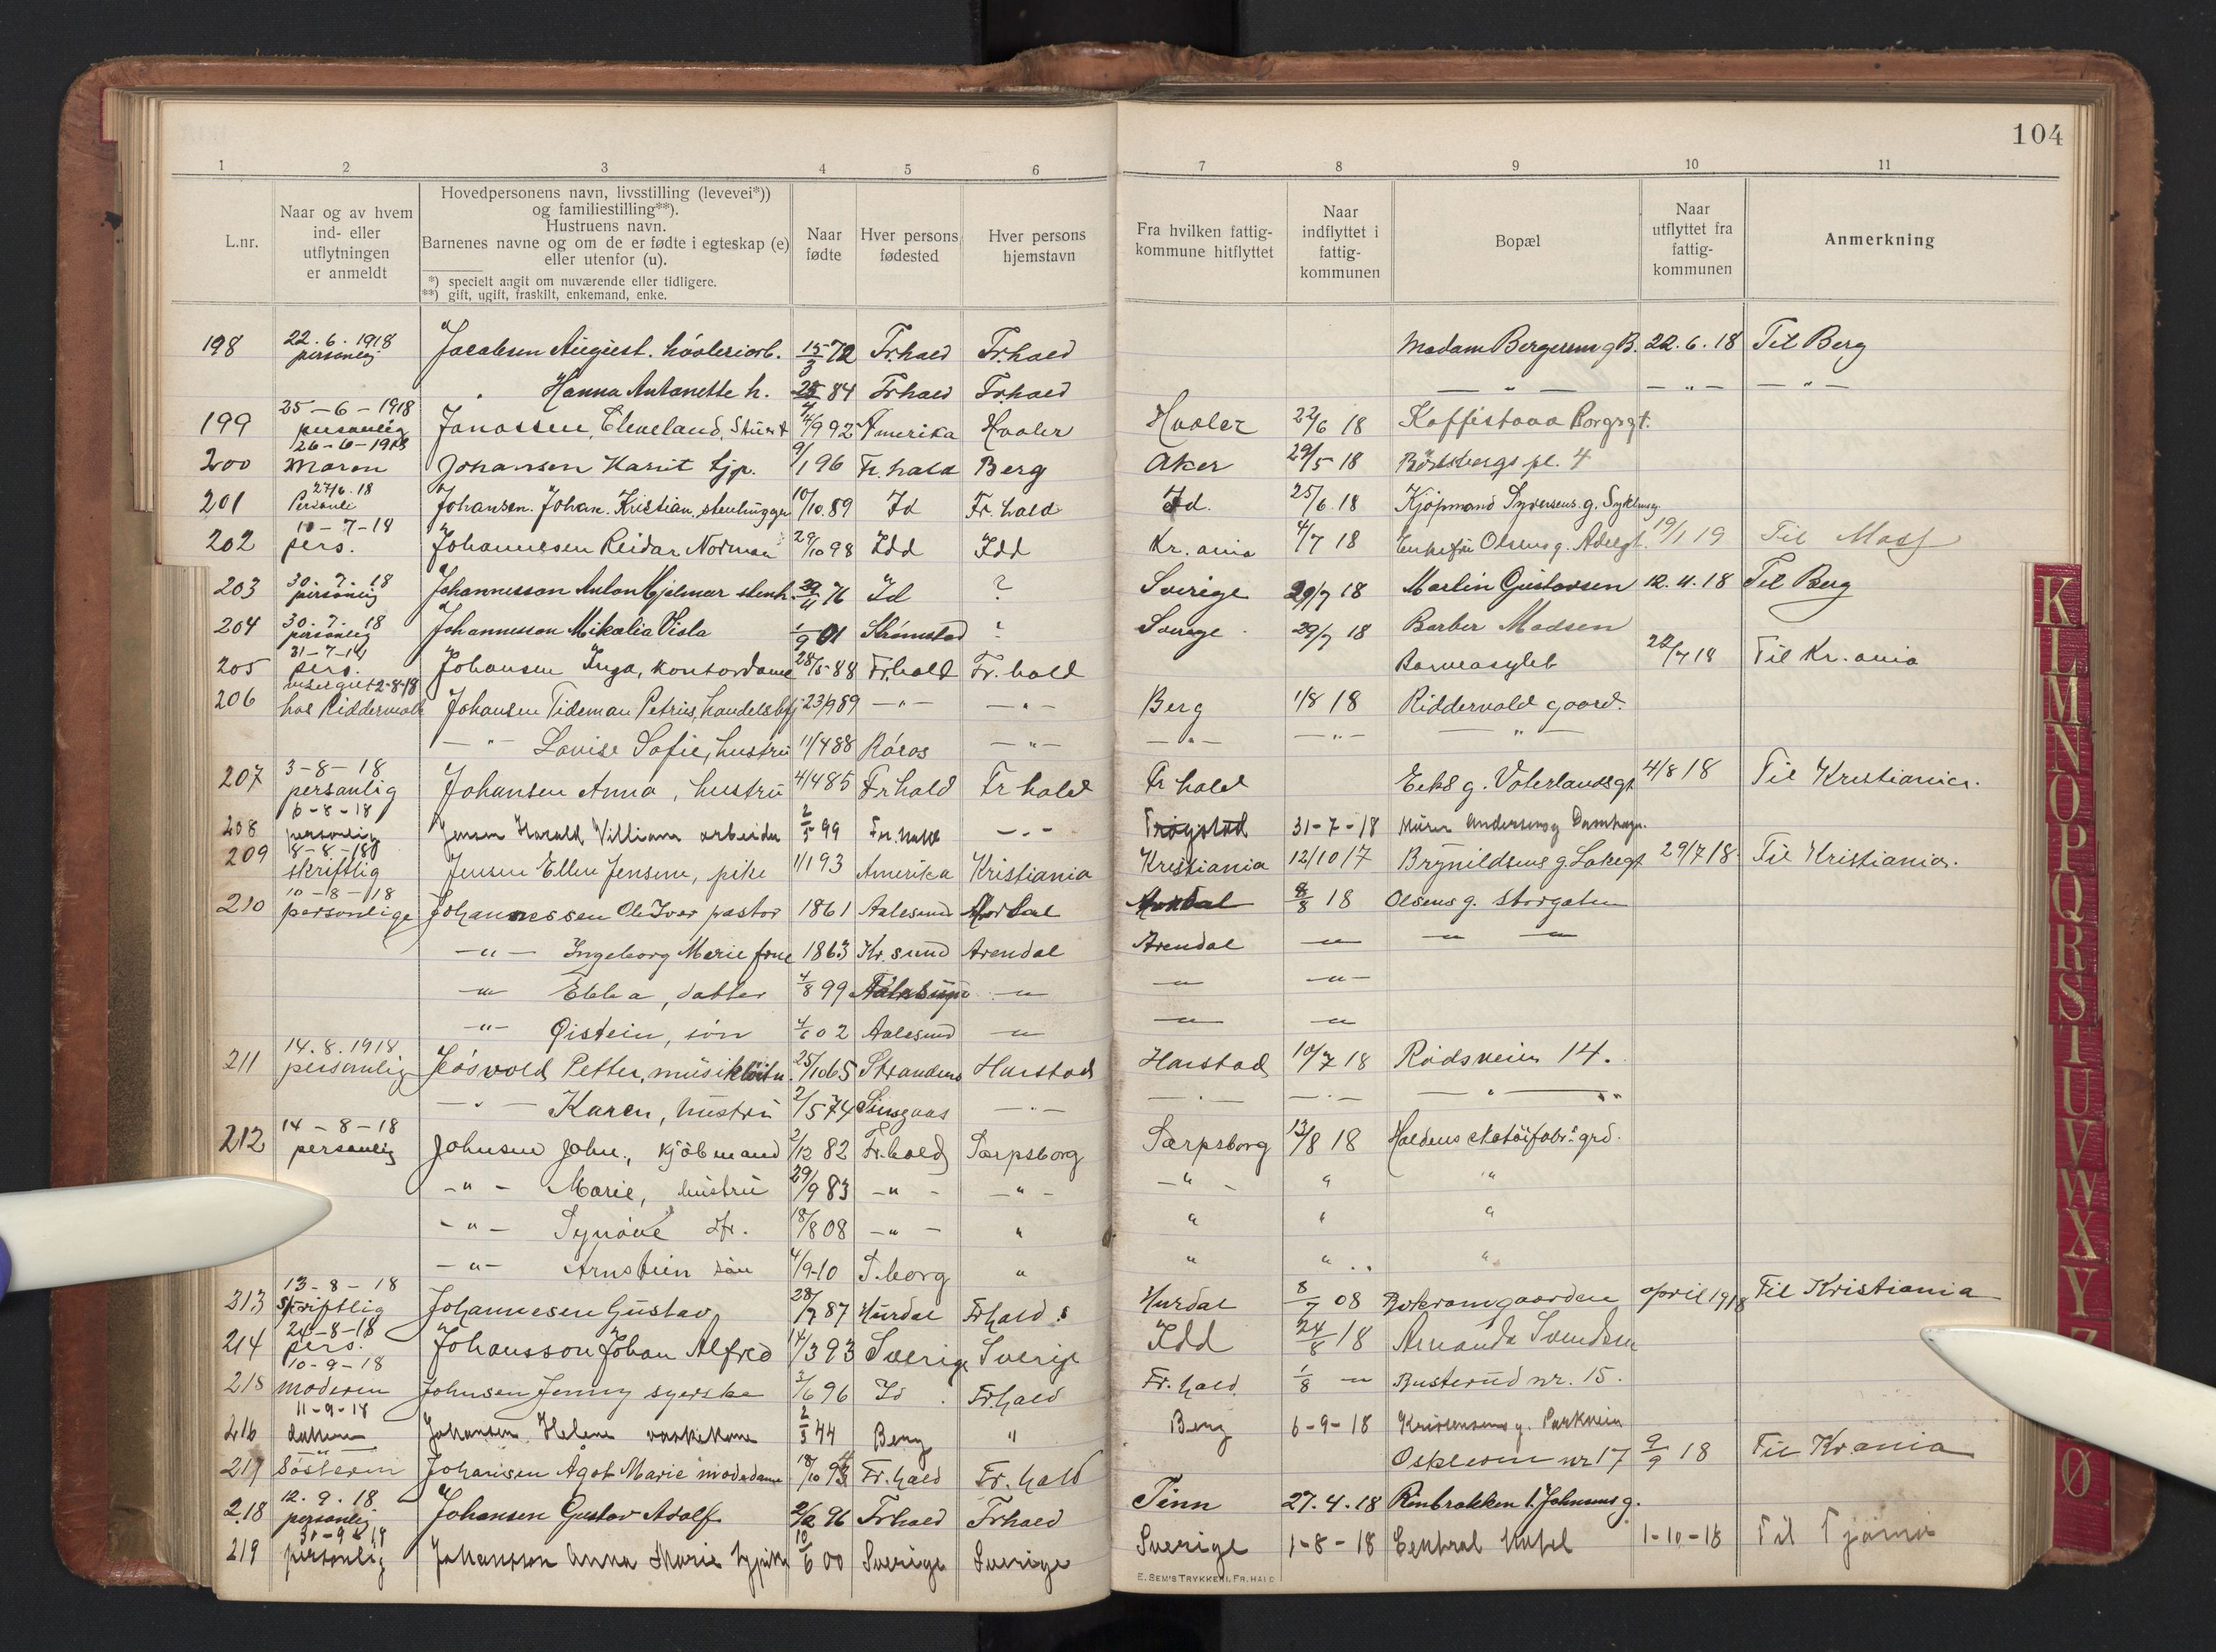 104
1 2 3 4 5 6 7 8 9 10 11
L.nr.
Naar og av hvem
ind- eller
utflytningen
er anmeldt
Hovedpersonens navn, livsstilling (levevei*))
og familiestilling**).
Hustruens navn.
Barnenes navne og om de er fødte i egteskap (e)
eller utenfor (u).
*) specielt angit om nuværende eller tidligere.
**) gift, ugift, fraskilt, enkemand, enke.
Naar
fødte
Hver persons
fødested
Hver persons
hjemstavn
Fra hvilken fattig-
kommune hitflyttet
Naar
indflyttet i
fattig-
kommunen
Bopæl
Naar
utflyttet fra
fattig-
kommunen
Anmerkning
198 22.6.1918 personlig Jacobsen August. 15/3 72 Fr.hald Fr.hald Madam Bergersens g B. 22.6.18 Til Berg
" Hanna Antonette h. 84 Fr.hald Fr.hald — " — — " — — " —
199 25-6-1918 personlig Jonassen, Cleveland, 4/9 92 Amerika Hvaler Hvaler 22/6 18 Kaffistova Borgrgt.
200 26-6-1918 moren Johansen Karit tjp. 9/1 96 Fr.hald Berg Aker 29/5 18 pl. 4
201 27/6.18 Johansen. Johan. Kristian, stenhugger 10/10.89 Id Fr.hald Id. 25/6.18 Kjøpmand Syversens g.
202 10-7-18 pers. Johannesen Reidar Norman 29/10 98 Idd Idd Kr.ania 4/7 18 Enkefru Olsens g. Adelgt. 19/1 19 Til Moss
203 30.7.18 personlig Johannesson Anton Hjalmar stenh. 76 Id ? Sverige 29/7 18 Martin Gustavsen 12.11.18 Til Berg
204 30.7.18 personlig Johannesson Mikalia Viola 1/9 01 Strömstad ? Sverige 29/7 18 Barber Madsen
205 31-7-18 pers. Johansen Inga, kontordame 28/5 88 Fr.hald Fr.hald Barneasylet 22/7 18 Til Kr.ania
206 2-8-18 hos Riddervold Johansen Tideman Petrius, 23/9 89 — " — — " — Berg 1/8 18 Riddervold gaard.
— " — Lovise Sofie, hustru 11/4 88 Röros — " — — " — — " — — " —
207 3-8-18 personlig Johansen Anna, hustru 4/4 85 Fr hald Fr hald Fr hald Eeks g. Vaterlandsgt 4/8 18 Til Kristiania.
208 6-8-18 personlig Jensen Harald Villiam arbeider 2/5 99 Fr.hald — " — Trøgstad 31-7-18 Murer Andersens g
209 8-8-18 skriftlig Jensen Ellen Jensine, pike 1/1 93 Amerika Kristiania Kristiania 12/10 17 Brynildsens g. 29/7 18. Til Kristiania.
210 10-8-18 personlige Johannessen Ole Ivar pastor 1861 Aalesund 8/8 18 Olsens g. Storgaten
— " — Ingeborg Marie frue 1863 Kr.sund Arendal Arendal — " — — " — — " —
— " — Ebba, datter 4/8 99 — " — — " — — " —
— " — Øistein, sön 4/6 02 Aalesund — " — — " — — " —
211 14.8.1918 personlig Petter, 25/10 65 Harstad Harstad 10/7 18 Rødsveien 14.
— " — Karen, hustru 2/5 74 — " — — " — — " — — " —
212 14-8-18 personlig Johnsen John., kjöbmand 2/12 82 Fr.hald Sarpsborg Sarpsborg 13/8 18 Haldens skotöifabr. grd.
— " — Marie, hustru 29/9 83 — " — — " — — " — " "
— " — Synöve dtr. 18/8 08 — " — " " " "
— " — Arnstein sön 4/9-10 S.borg " " " "
213 13-8-18 skriftlig Johannesen Gustav, 28/7 87 Hurdal Fr.hald Hurdal 8/7 08 april 1918 Til Kristiania
214 24-8-18 pers. Johansson Johan Alfred 14/3 93 Sverige Sverige Idd 24/8 18 Amanda Svendsen
215 10-9-18 moderen Johnsen Jenny syerske 3/6 96 Id Fr.hald Fr.hald 1/8 — " — Busterud nr. 15.
216 11-9-18 Johansen Helene vaskekone 2/3 44 Berg " Berg 6-9-18 Parkveien
217 " Søsteren Johansen Agot Marie modedame 18/10 93 Fr.hald Fr.hald nr 17 9/9 18 Til Kr.ania
218 12.9.18 personlig Johansen Gustav Adolf 2/2 96 Fr.hald Fr.hald Tinn 27.4.18 Rinbrakken 1. Johnsens g.
219 personlig Johansson Anna Maria 12/6 00 Sverige Sverige Sverige 1-8-18 Central Hotel 1-10-18 Til
E. SEM'S TRYKKERI, FR.HALD
K
L
M
N
O
P
Q
R
S
T
U
V
W
X
Y
Z
Ø